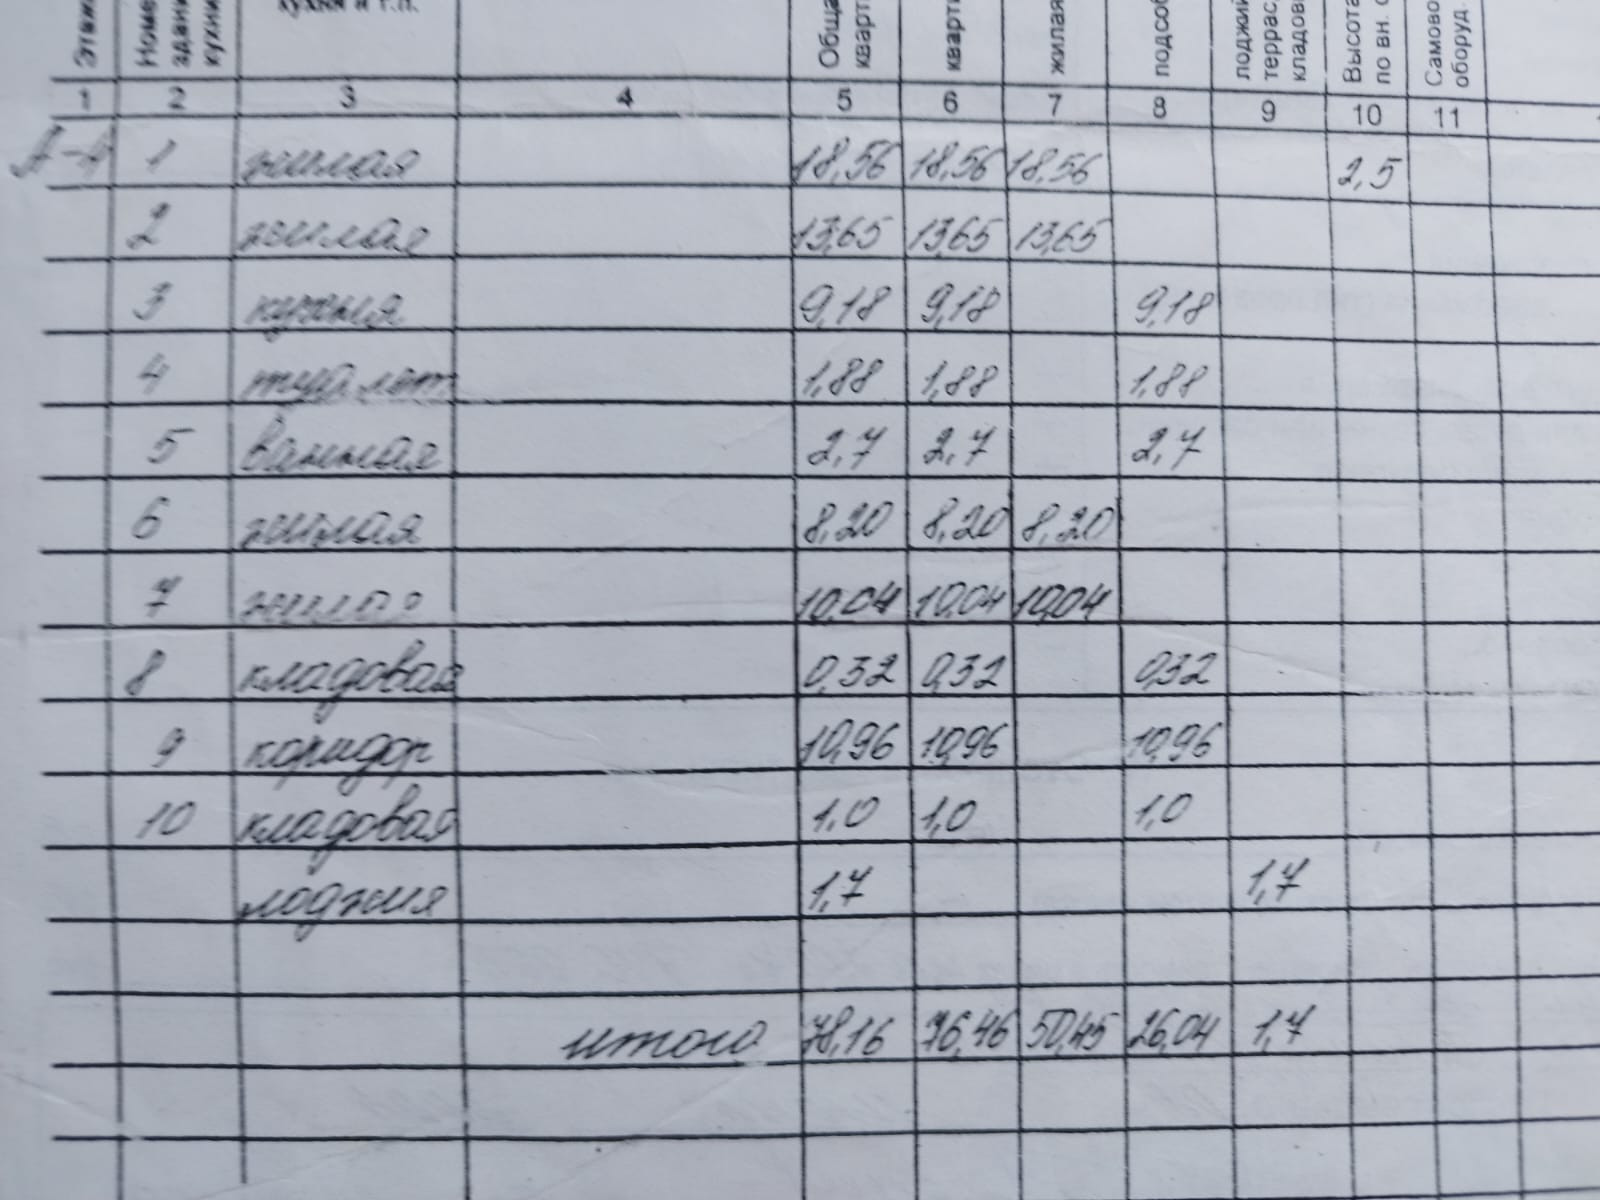 кухни и т.п.
Этажи
Номе
здани
кухни
Обща
кварт
кварти
жилая
подсоб
лоджий
террас,
кладовы
Высота
по вн. о
Самово
оборуд.
1 2 3 4 5 6 7 8 9 10 11
А-4 1 жилая 18,56 18,56 18,56 2,5
2 жилая 13,65 13,65 13,65
3 кухня 9,18 9,18 9,18
4 туалет. 1,88 1,88 1,88
5 ванная 2,7 2,7 2,7
6 жилая 8,20 8,20 8,20
7 жилая 10,04 10,04 10,04
8 кладовая 0,32 0,32 0,32
9 коридор 10,96 10,96 10,96
10 кладовая 1,0 1,0 1,0
лоджия 1,7 1,7
итого 78,16 76,46 50,45 26,04 1,7